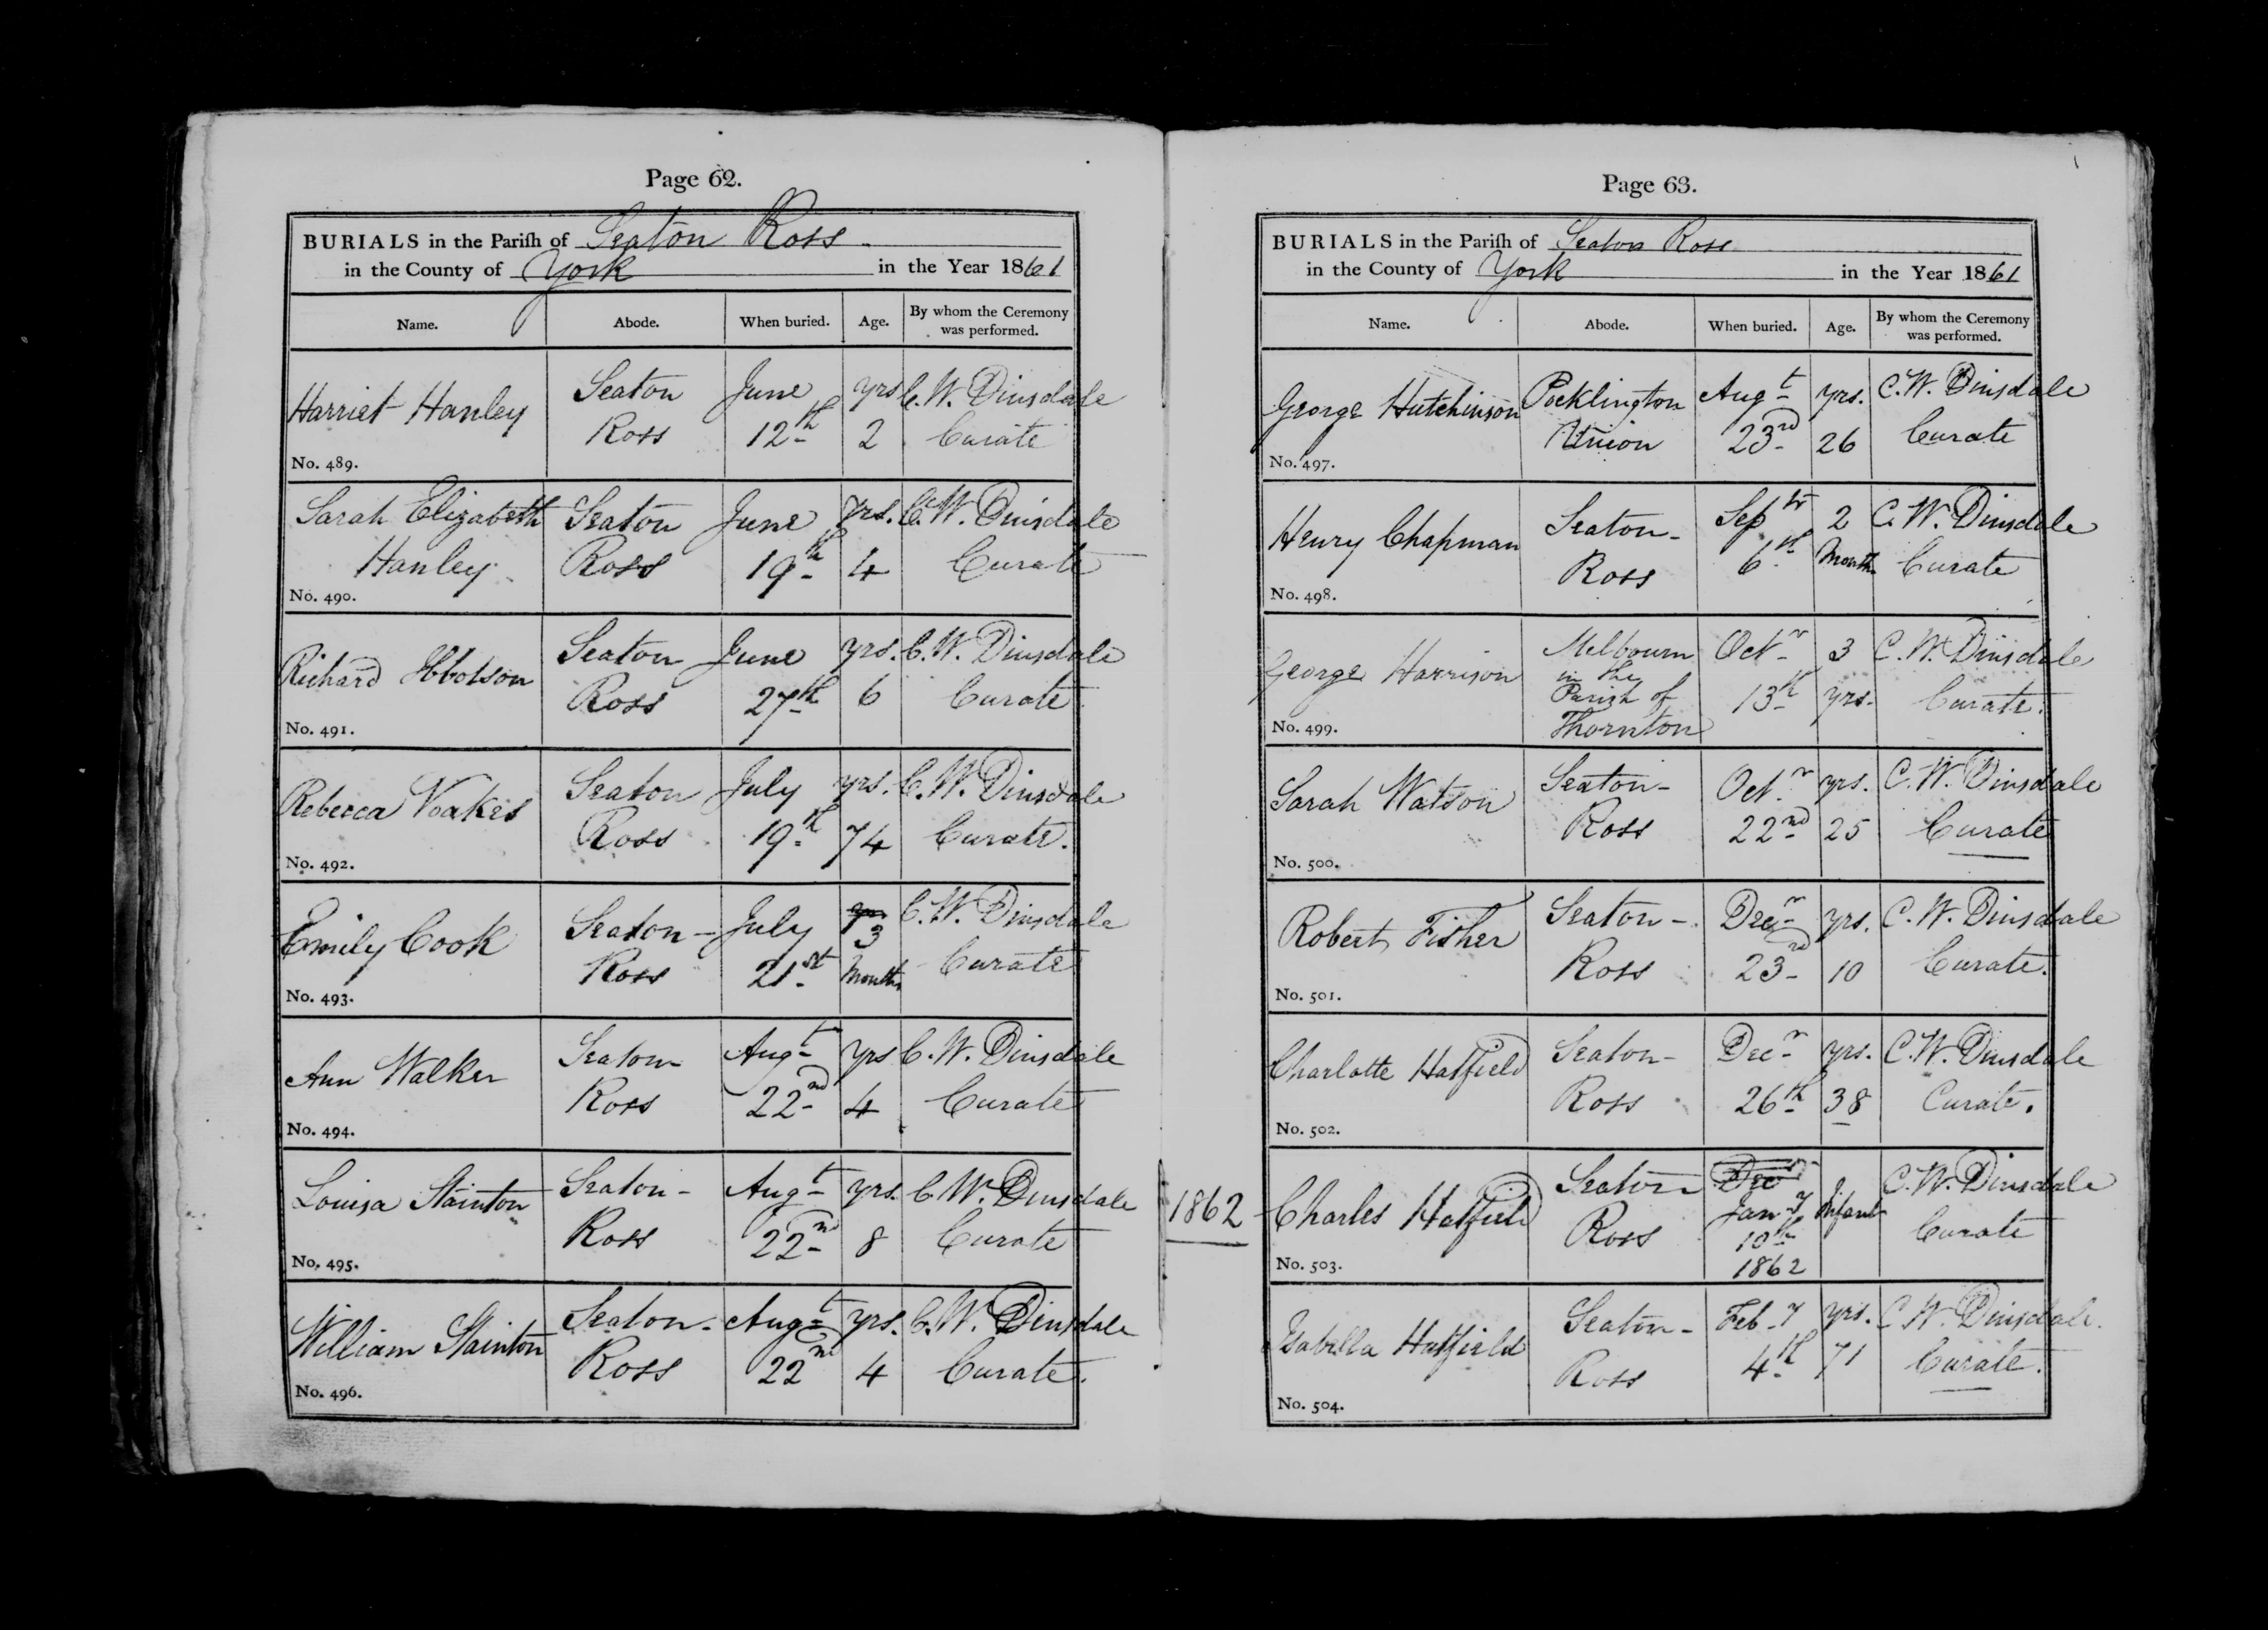 Page 62.
BURIALS in the Parish of Seaton Ross
in the County of York in the Year 1861
Name. Abode. When buried. Age. By whom the Ceremony was performed.
Harriet Hanley Seaton June yrs C. W. Dinsdale
Ross 12th 2 Curate
No. 489.
Sarah Elizabeth Seaton June yrs. C. W. Dinsdale
Hanley Ross 19th 4 Curate
No. 490.
Richard Ibbotson Seaton June yrs. C. W. Dinsdale
Ross 27th 6 Curate
No. 491.
Rebecca Voakes Seaton July yrs. C. W. Dinsdale
Ross 19th 74 Curate.
No. 492.
Emily Cook Seaton - July yrs 3 C. W. Dinsdale
Ross 21st Months Curate
No. 493.
Ann Walker Seaton Augt yrs C. W. Dinsdale
Ross 22nd 4 Curate
No. 494.
Louisa Stainton Seaton - Augt yrs. C. W. Dinsdale
Ross 22nd 8 Curate
No. 495.
William Stainton Seaton - Augt yrs. C. W. Dinsdale
Ross 22nd 4 Curate.
No. 496.
Page 63.
BURIALS in the Parish of Seaton Ross
in the County of York in the Year 1861
Name. Abode. When buried. Age. By whom the Ceremony was performed.
George Hutchinson Pocklington Augt yrs. C. W. Dinsdale
Union 23rd 26 Curate
No. 497.
Henry Chapman Seaton - Sepr 2 C. W. Dinsdale
Ross 6th Months Curate
No. 498.
George Harrison Melbourn Octr 3 C. W. Dinsdale
in the
Parish of 13th yrs. Curate.
Thornton
No. 499.
Sarah Watson Seaton - Octr yrs. C. W. Dinsdale
Ross 22nd 25 Curate
No. 500.
Robert Fisher Seaton - Decr yrs. C. W. Dinsdale
Ross 23rd 10 Curate.
No. 501.
Charlotte Hatfield Seaton - Decr yrs. C. W. Dinsdale
Ross 26th 38 Curate.
No. 502.
Dec
1862 Charles Hatfield Seaton Jany Infant C. W. Dinsdale
Ross 10th Curate
1862
No. 503.
Isabella Hatfield Seaton - Feby yrs. C. W. Dinsdale.
Ross 4th 71 Curate.
No. 504.